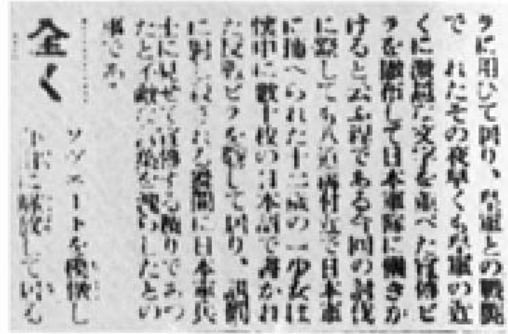 ラに用ひて居り、皇軍との戦闘
で れたその夜早くも皇軍の近
くに 文字を並べた宣傳ビ
ラを撒布して日本軍隊に働きか
けると云ふ程である今回の討伐
に際しても八道 附近で日本軍
に捕へられた十二歳の一少女は
懐中に数十枚の日本語で書かれ
た反戦ビラを蔵して居り、訊問
に された瞬間に日本軍兵
士に見せて宣傳する積りであつ
たと不敵な言葉を洩らしたとの
事であ
全く
ソヴエートを模倣し
して居る